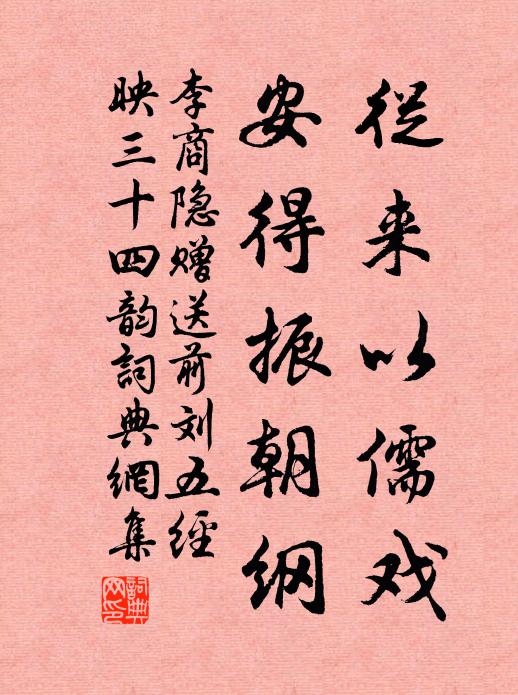 从来以儒戏
安得振朝纲
李商隐赠送前刘五经
映三十四韵词典网集
詞典
网印